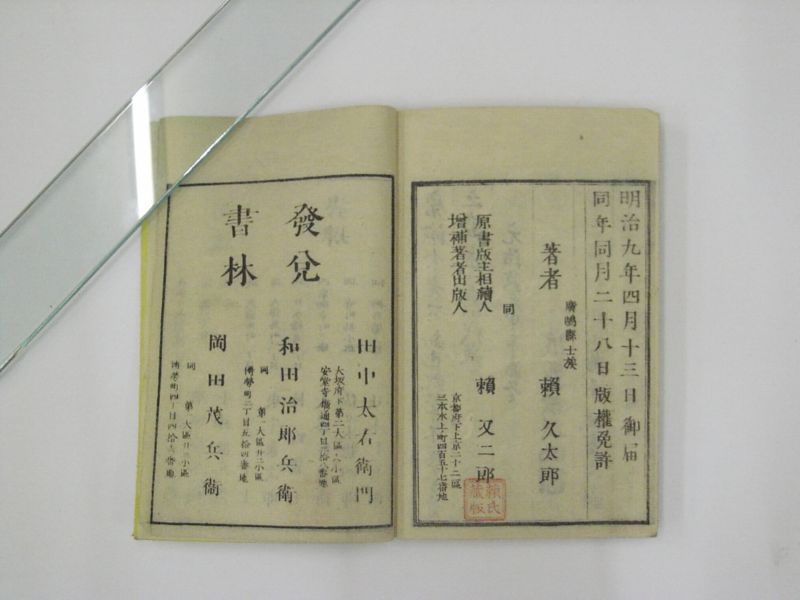 明治九年四月十三日御届
同年同月二十八日版權免許
廣嶋縣士族
著者 賴久太郎
同
原書版主相續人
増補著者出版人
賴又二郎
京都府下上京二十二區
三本木上ノ町四百五十七番地
賴氏藏版
發兌
書林
大坂府下第二大區
田中太右衞門
同 第一大區
博勞町二丁目五拾四番地
和田治郎兵衞
同 第一大區
博勞町四丁目四拾
岡田茂兵衞